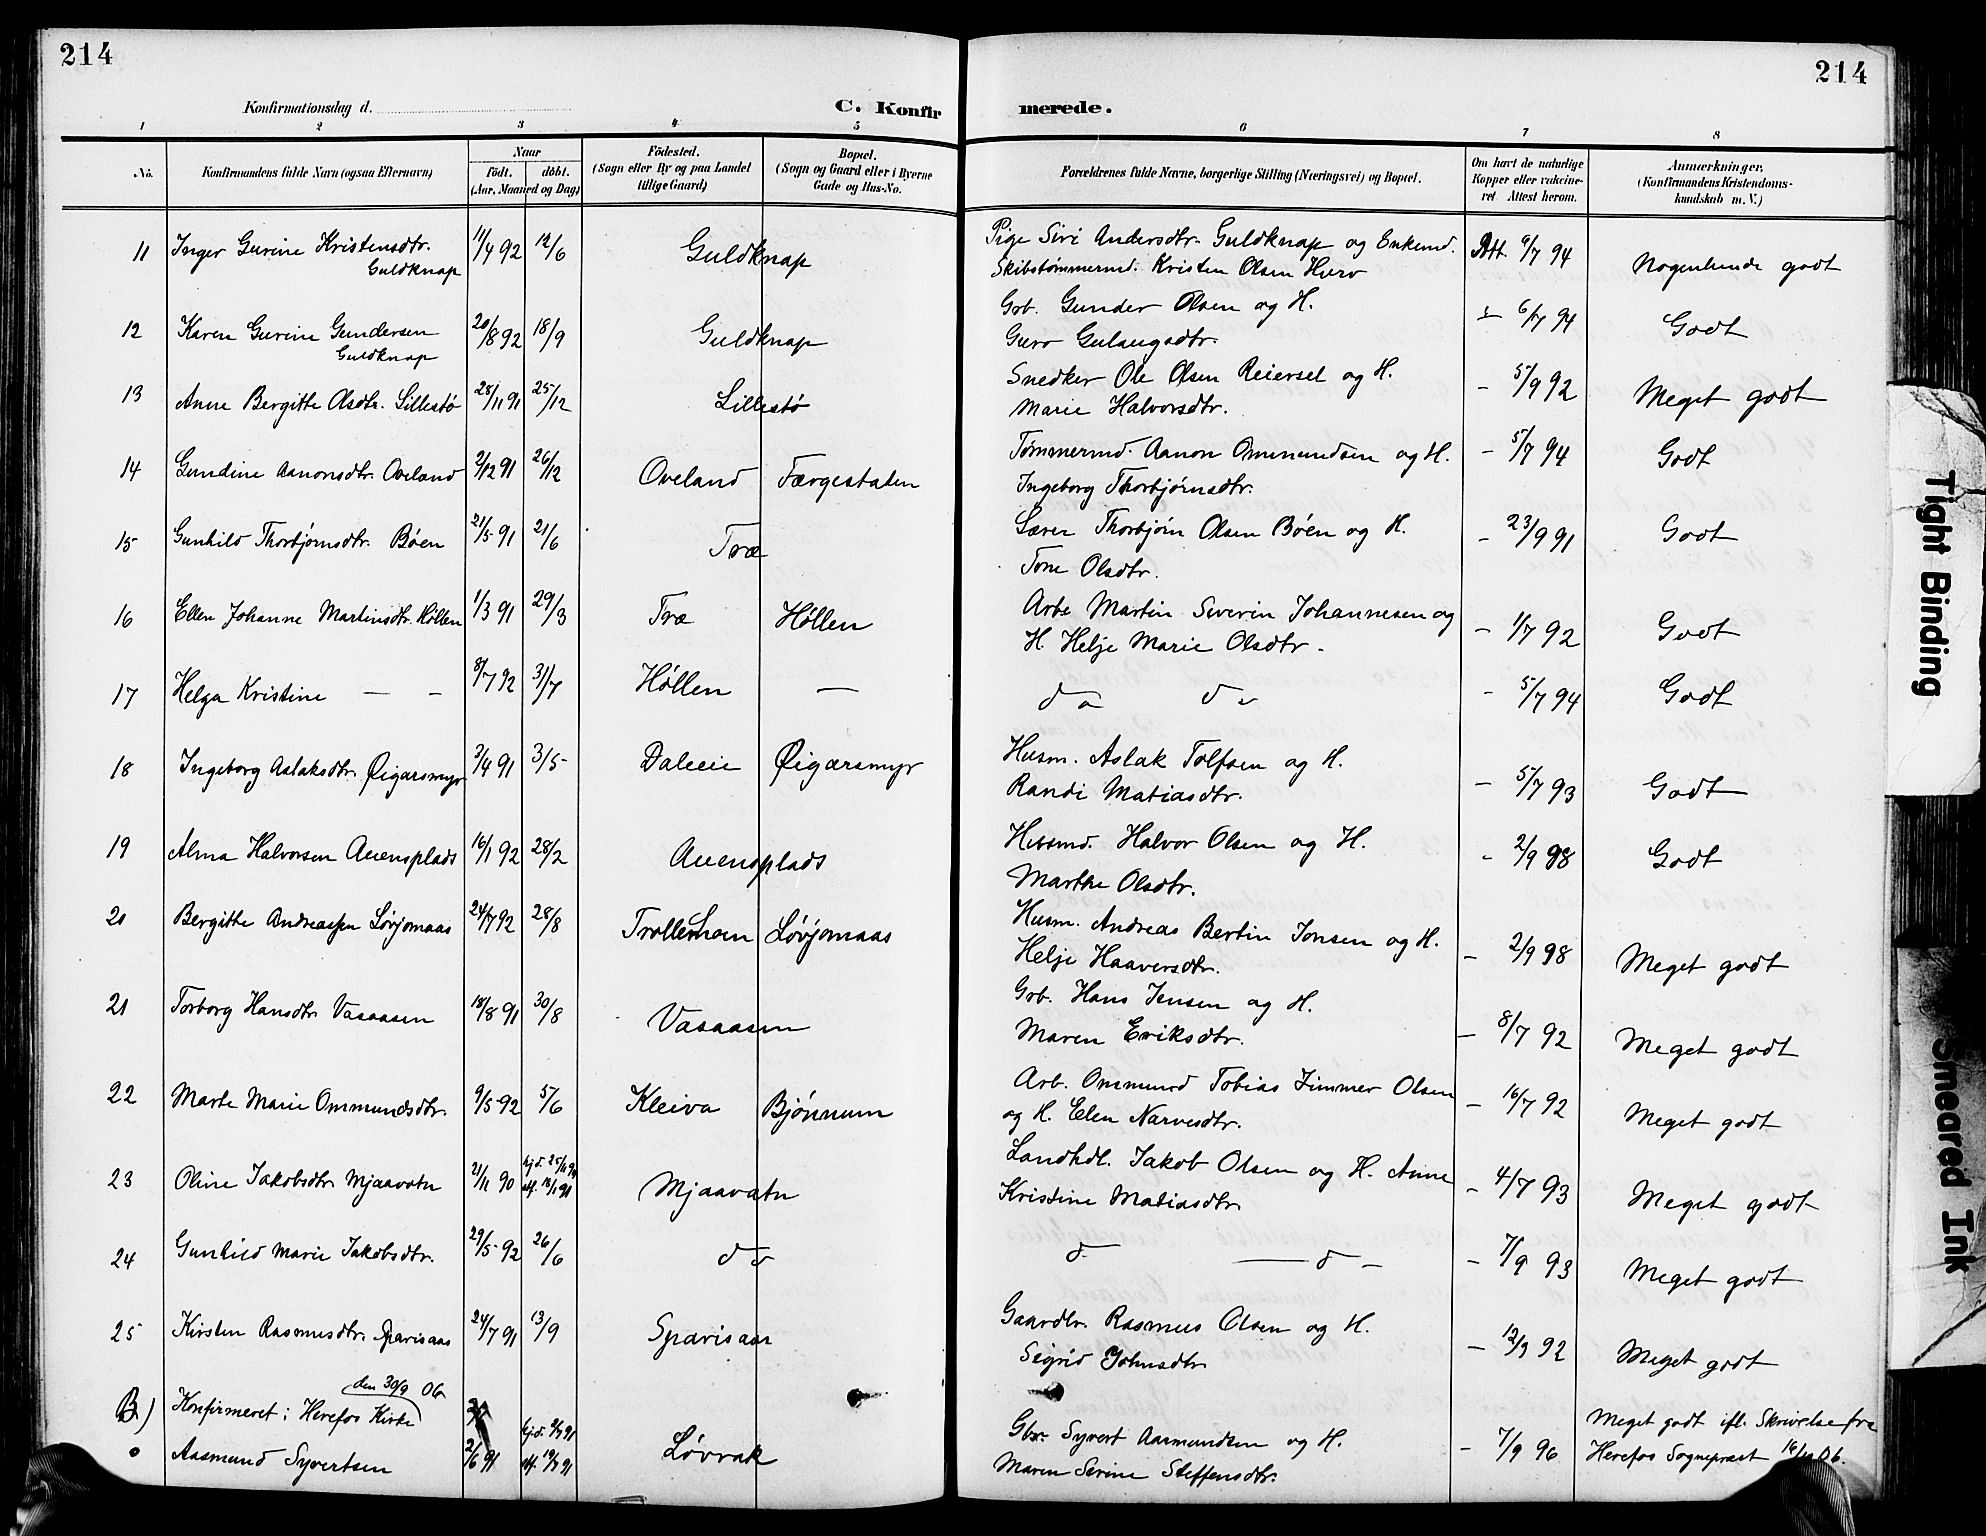 214
214
Konfirmationsdag d.
C. Konfir merede.
1 2 3 4 5 6 7 8
No. Konfirmandens fulde Navn (ogsaa Efternavn) Naar födt. döbt. (Aar, Maaned og Dag) Födested. (Sogn eller By og paa Landet tillige Gaard) Bopæl. (Sogn og Gaard eller i Byerne Gade og Hus-No. Forældrenes fulde Navne, borgerlige Stilling (Næringsvei) og Bopæl. Om havt de naturlige Kopper eller vakcineret Attest herom. Anmærkninger. (Konfirmandens Kristendomskundskab m. V.)
11 Inger Gurine Kristensdtr. 11/4 92 12/6 Guldknap Pige Siri Andersdtr. Guldknap og Enkemd. Att. 6/7 94 Nogenlunde godt
Guldknap Skibstømmermd. Kristen Olsen
12 Karen Gurine Gundersen 20/8 92 18/9 Guldknap Grb. Gunder Olsen og H. 6/7 94 Godt
Guldknap Guro Gulaugsdtr.
13 Anne Bergitte Olsdtr. Lillestø 28/11 91 25/12 Lillestø Snedker Ole Olsen Reiersel og H. - 5/9 92 Meget godt
Marie Halvorsdtr.
14 Gundine Aanonsdtr. Oveland 2/12 91 26/12 Oveland Færgestaden Tømmermd. Aanon Ommundsen og H. - 5/7 94 Godt
Ingeborg Thorbjørnsdtr.
15 Gunhild Thorbjørnsdtr. Bøen 21/5 91 21/6 Træ Lærer Thorbjørn Olsen Bøen og H. - 23/9 91 Godt
Tone Olsdtr.
16 Ellen Johanne Martinsdtr. Høllen 1/3 91 29/3 Træ Høllen Arbr Martin Severin Johannesen og - 1/7 92 Godt
H. Helje Marie Olsdtr.
17 Helga Kristine — - 8/7 92 31/7 Høllen — do do - 5/7 94 Godt
18 Ingeborg Aslaksdtr. Øigarsmyr 3/4 91 3/5 Daleeie Øigarsmyr Husm. Aslak Tolfsen og H. - 5/7 93 Godt
Randi Matiasdtr.
19 Alma Halvorsen Auensplads 16/1 92 28/2 Auensplads Husmd. Halvor Olsen og H. - 2/9 98 Godt
Marthe Olsdtr.
20 Bergitte Andreassen Løvjomaas 24/7 92 28/8 Løvjomaas Husm. Andreas Bertin Jonsen og H. - 2/9 98 Meget godt
Helje Haaversdtr.
21 Torborg Hansdtr. Vasaasen 18/8 91 30/8 Vasaasen Grb. Hans Jensen og H. - 8/7 92 Meget godt
Maren Eriksdtr.
22 Marte Marie Ommundsdtr. 9/5 92 5/6 Kleiva Bjønnum Arb. Ommund Tobias Zimmer Olsen - 16/7 92 Meget godt
og H. Elen Narvesdtr.
23 Oline Jakobsdtr. Mjaavatn 21/11 90 hjd. 25/11 90 Mjaavatn Landhdl. Jakob Olsen og H. Anne - 4/7 93 Meget godt
stf. 18/1 91 Kristine Matiasdtr.
24 Gunhild Marie Jakobsdtr. 29/5 92 26/6 do d — d - - 7/9 93 Meget godt
25 Kirsten Rasmusdtr. Sparisaas 24/7 91 13/9 Sparisaas Gaardbr. Rasmus Olsen og H. - 12/9 92 Meget godt
Sigrid Johnsdtr
den 30/9 06
B) Konfirmeret i Herefos Kirke
Aasmund Syvertsen 2/6 91 hjd. 9/7 91 stf. 19/7 91 Løvrak Gbr. Syvert Aasmundsen og H. - 7/9 96 Meget godt ifl. Skrivelse fra
Maren Serine Steffensdtr. Herefos Sogneprest 16/10 06.
Tight Binding
Smeared Ink